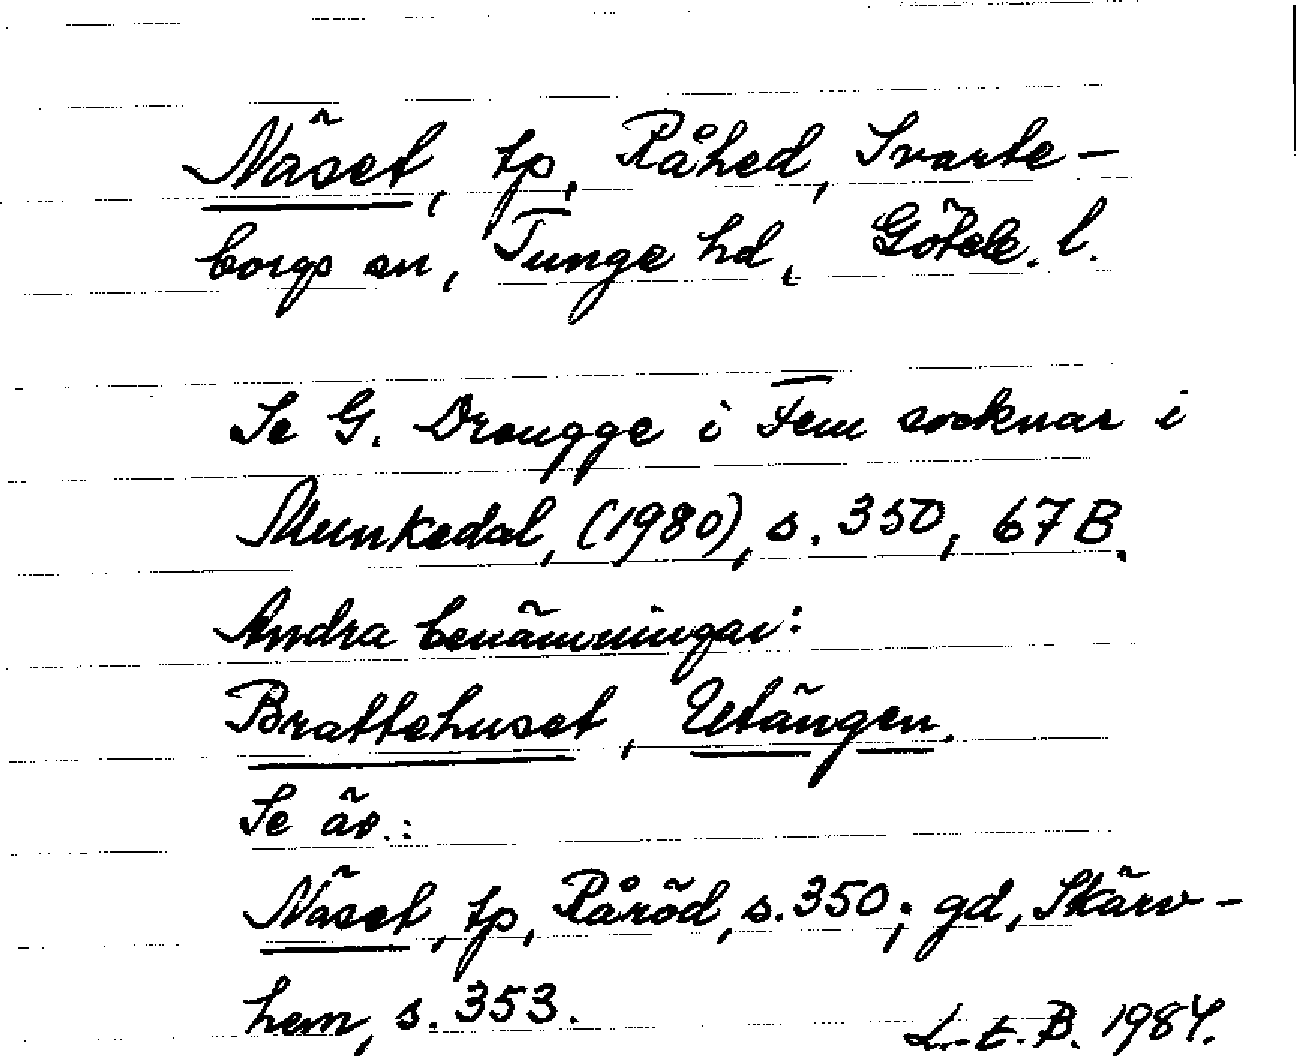 Näset, tp, Råhed, Svarte-
borgs sn, Tunge hd, Göteb. l.
Se G. Drougge i Fem socknar i
Munkedal, (1980), s. 350, 67 B.
Andra benämningar:
Brattehuset, Utängen.
Se äv.:
Näset, tp, Råröd, s. 350; gd, Skärv-
hem, s. 353.
L.t.B. 1984.